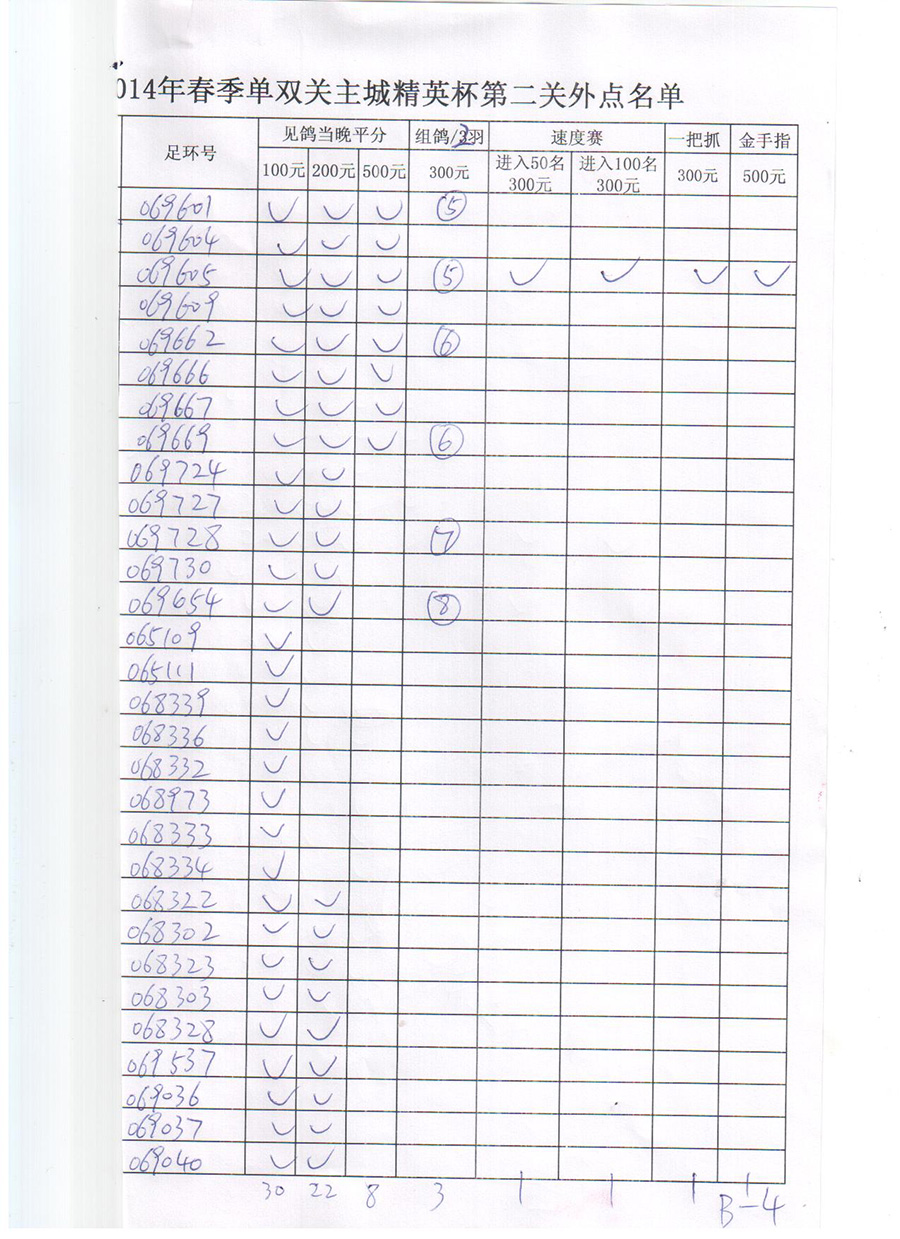 014年春季单双关主城精英杯第二关外点名单
足环号 见鸽当晚平分 组鸽/2羽 速度赛 一把抓 金手指
100元 200元 500元 300元 进入50名 300元 进入100名 300元 300元 500元
069601 ✓ ✓ ✓ ⑤
069604 ✓ ✓ ✓
069605 ✓ ✓ ✓ ⑤ ✓ ✓ ✓ ✓
069609 ✓ ✓ ✓
069662 ✓ ✓ ✓ ⑥
069666 ✓ ✓ ✓
069667 ✓ ✓ ✓
069669 ✓ ✓ ✓ ⑥
069724 ✓ ✓
069727 ✓ ✓
069728 ✓ ✓ ⑦
069730 ✓ ✓
069654 ✓ ✓ ⑧
065109 ✓
065111 ✓
068339 ✓
068336 ✓
068332 ✓
068973 ✓
068333 ✓
068334 ✓
068322 ✓ ✓
068302 ✓ ✓
068323 ✓ ✓
068303 ✓ ✓
068328 ✓ ✓
069537 ✓ ✓
069036 ✓ ✓
069037 ✓ ✓
069040 ✓ ✓
30 22 8 3 1 1 1 1
B-4